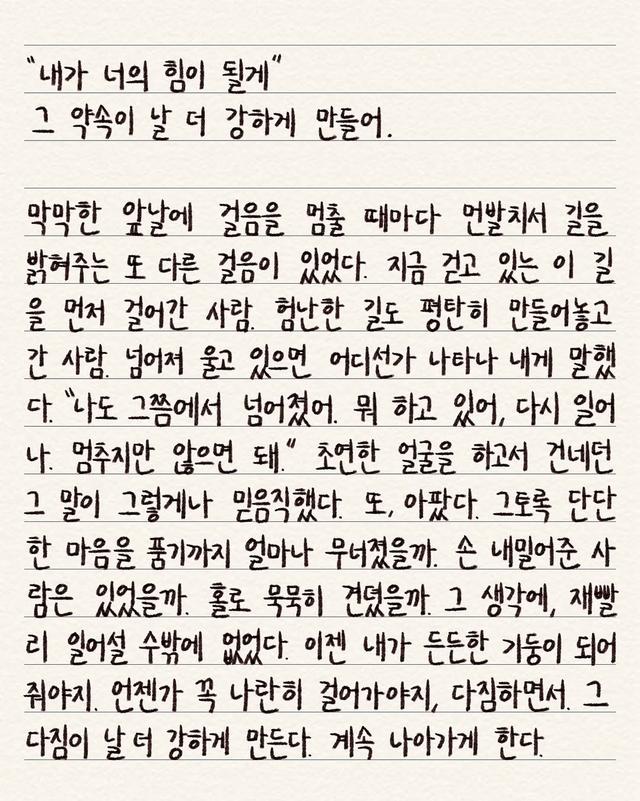 "내가 너의 힘이 될게"
그 약속이 날 더 강하게 만들어.
막막한 앞날에 걸음을 멈출 때마다 먼발치서 길을
밝혀주는 또 다른 걸음이 있었다. 지금 걷고 있는 이 길
을 먼저 걸어간 사람. 험난한 길도 평탄히 만들어놓고
간 사람. 넘어져 울고 있으면 어디선가 나타나 내게 말했
다. "나도 그쯤에서 넘어졌어. 뭐 하고 있어, 다시 일어
나. 멈추지만 않으면 돼." 초연한 얼굴을 하고서 건네던
그 말이 그렇게나 믿음직했다. 또, 아팠다. 그토록 단단
한 마음을 품기까지 얼마나 무너졌을까. 손 내밀어준 사
람은 있었을까. 홀로 묵묵히 견뎠을까. 그 생각에, 재빨
리 일어설 수밖에 없었다. 이젠 내가 든든한 기둥이 되어
줘야지. 언젠가 꼭 나란히 걸어가야지, 다짐하면서. 그
다짐이 날 더 강하게 만든다. 계속 나아가게 한다.